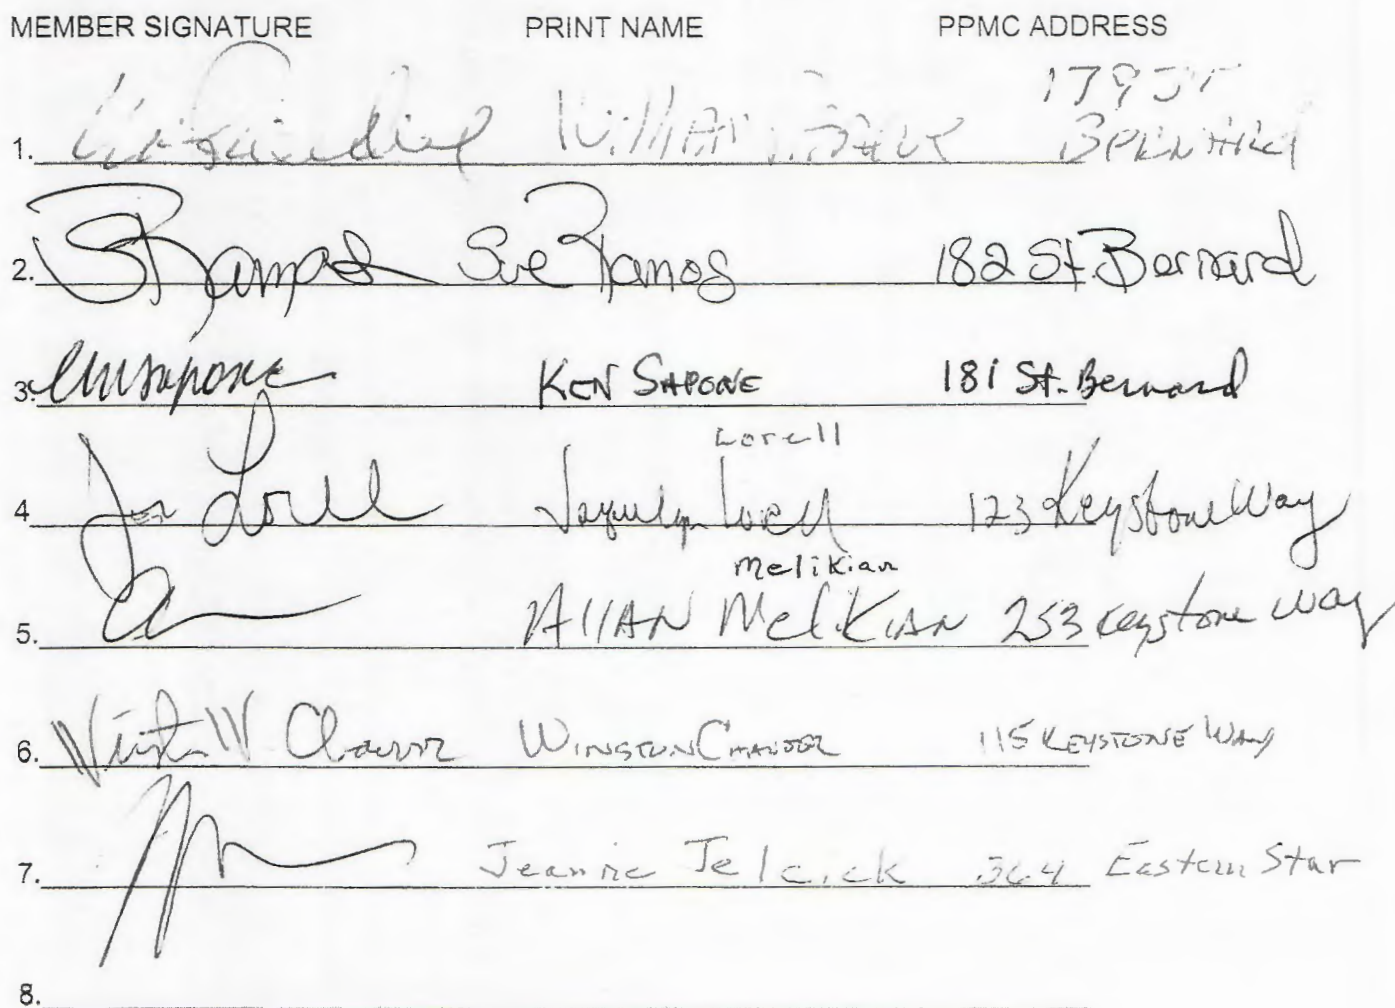 MEMBER SIGNATURE PRINT NAME PPMC ADDRESS
179 ST
1. BERNARd
2. SRamos Sue Ramos 182 St Bernard
3. KEN SAPONE 181 St. Bernard
Lorell
4 Lorell Jaquelyn Lorell 123 Keystone Way
Melikian
5. AllAN MelikiAN 253 Keystone way
6. WINSTON 115 KEYSTONE WAY
7. Jeannie Jelcick 364 Eastern Star
8.